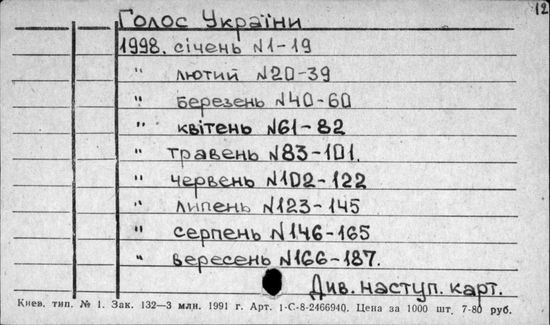 12
Голос України
1998. січень N1-19
" лютий N20-39
" березень N40-60
" квітень N61-82
" травень N83-101.
" червень N102-122
" липень N123-145
" серпень N146-165
" вересень N166-187.
Див. наступ. карт.
Киев. тип. № 1. Зак. 132—3 млн. 1991 г. Арт. 1-С-8-2466940. Цена за 1000 шт. 7-80 руб.